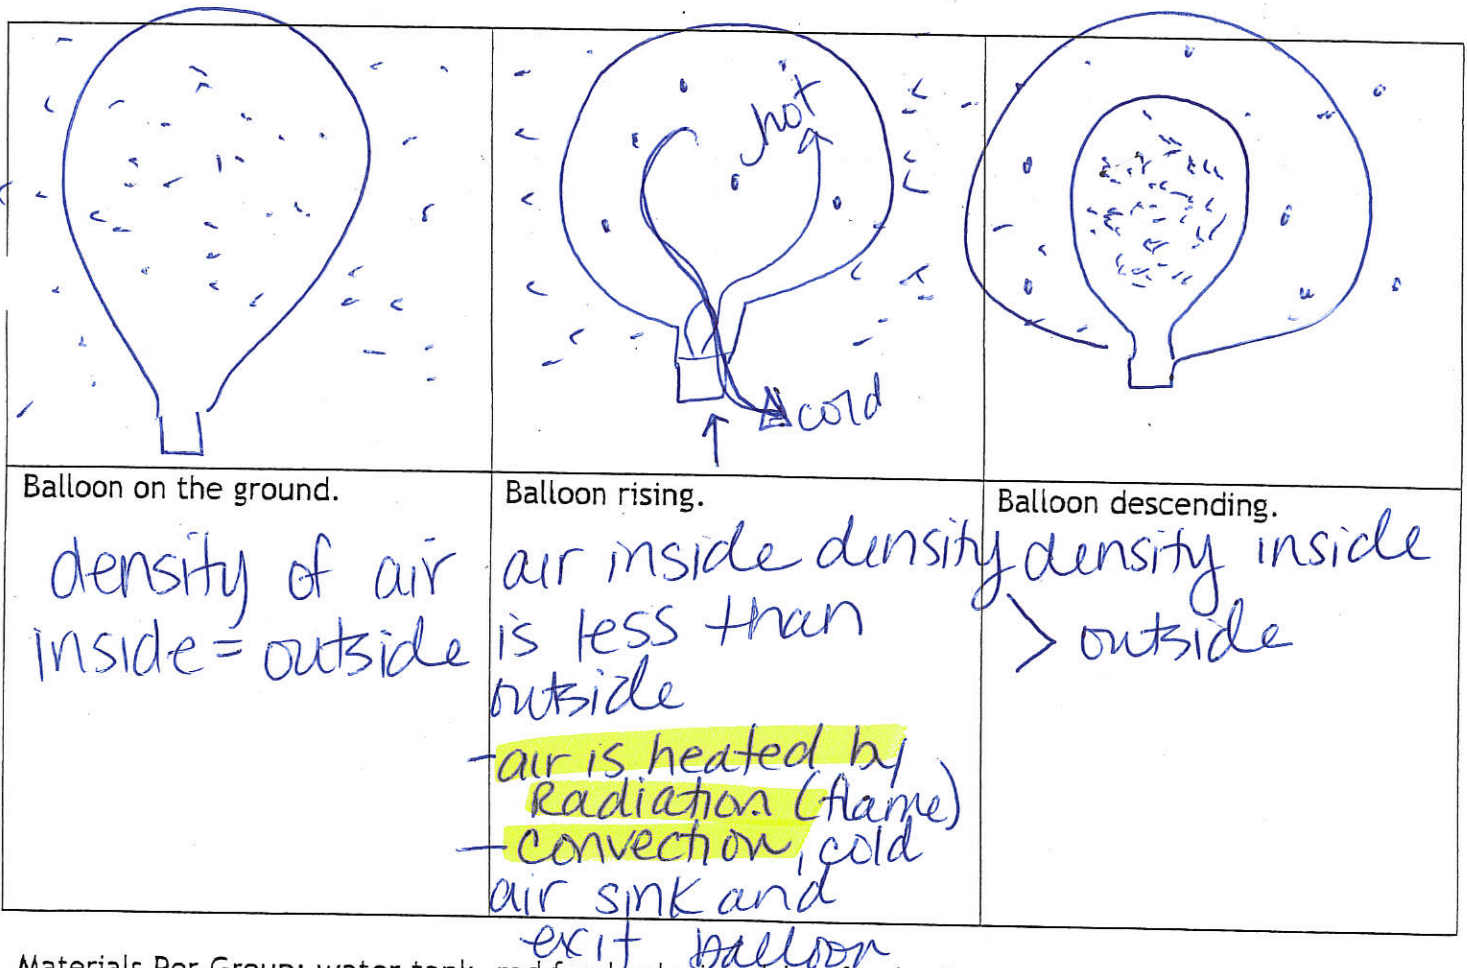 hot
cold
Balloon on the ground.
density of air
inside = outside
Balloon rising.
air inside density
is less than
outside
- air is heated by
Radiation (flame)
- convection, cold
air sink and
exit balloon
Balloon descending.
density inside
> outside
Materials Per Group: water tank, red